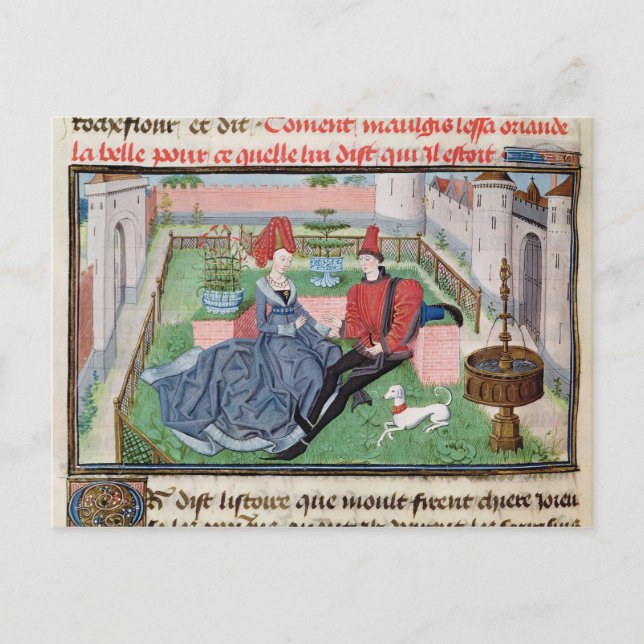 rocheflour et dit · Coment maulgis lessa oriande
la belle pour ce quelle lui dist qui il estoit
Or dist listoire que moult firent chiere joieu